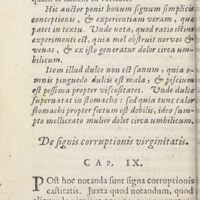 Hic auctor ponit bonum signum simplicis
conceptionis, & experientiam veram, quæ
patet in textu. Unde nota, quod ratio istius
experimenti est, quia mel obstruit nervos &
venas, & ex isto generatur dolor circa um-
bilicum.
Item illud dulce non est sanum, quia o-
mnis pinguedo dulcis est mala, & piscium
est pessima propter viscositates. Unde dulce
supernatat in stomacho: sed quia tunc calor
stomachi propter fœtum est debilis, ideo sum-
pto mellicrato mulier dolet circa umbilicum.
De signis corruptionis virginitatis.
CAP. IX.
POst hoc notanda sunt signa corruptionis
castitatis. Juxta quod notandum, quod